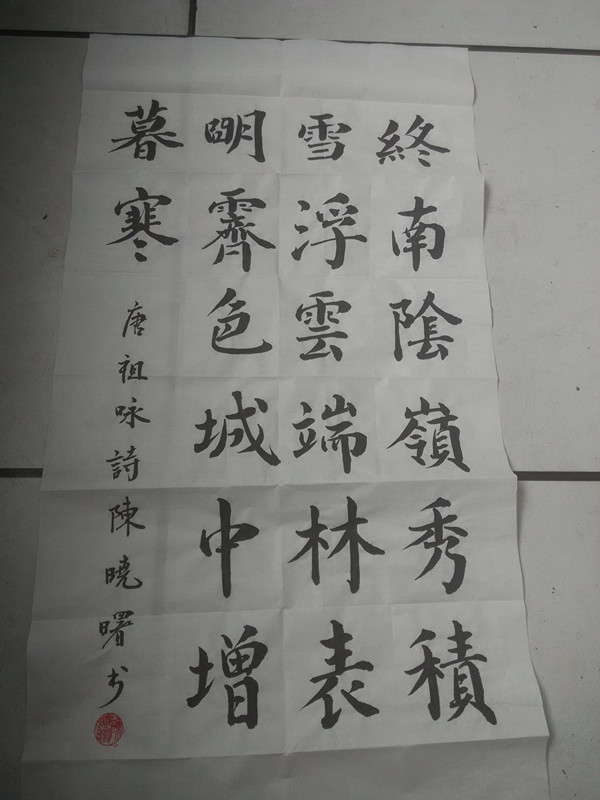 終南陰嶺秀積
雪浮雲端林表
朙霽色城中增
暮寒
唐祖咏詩陳曉曙书